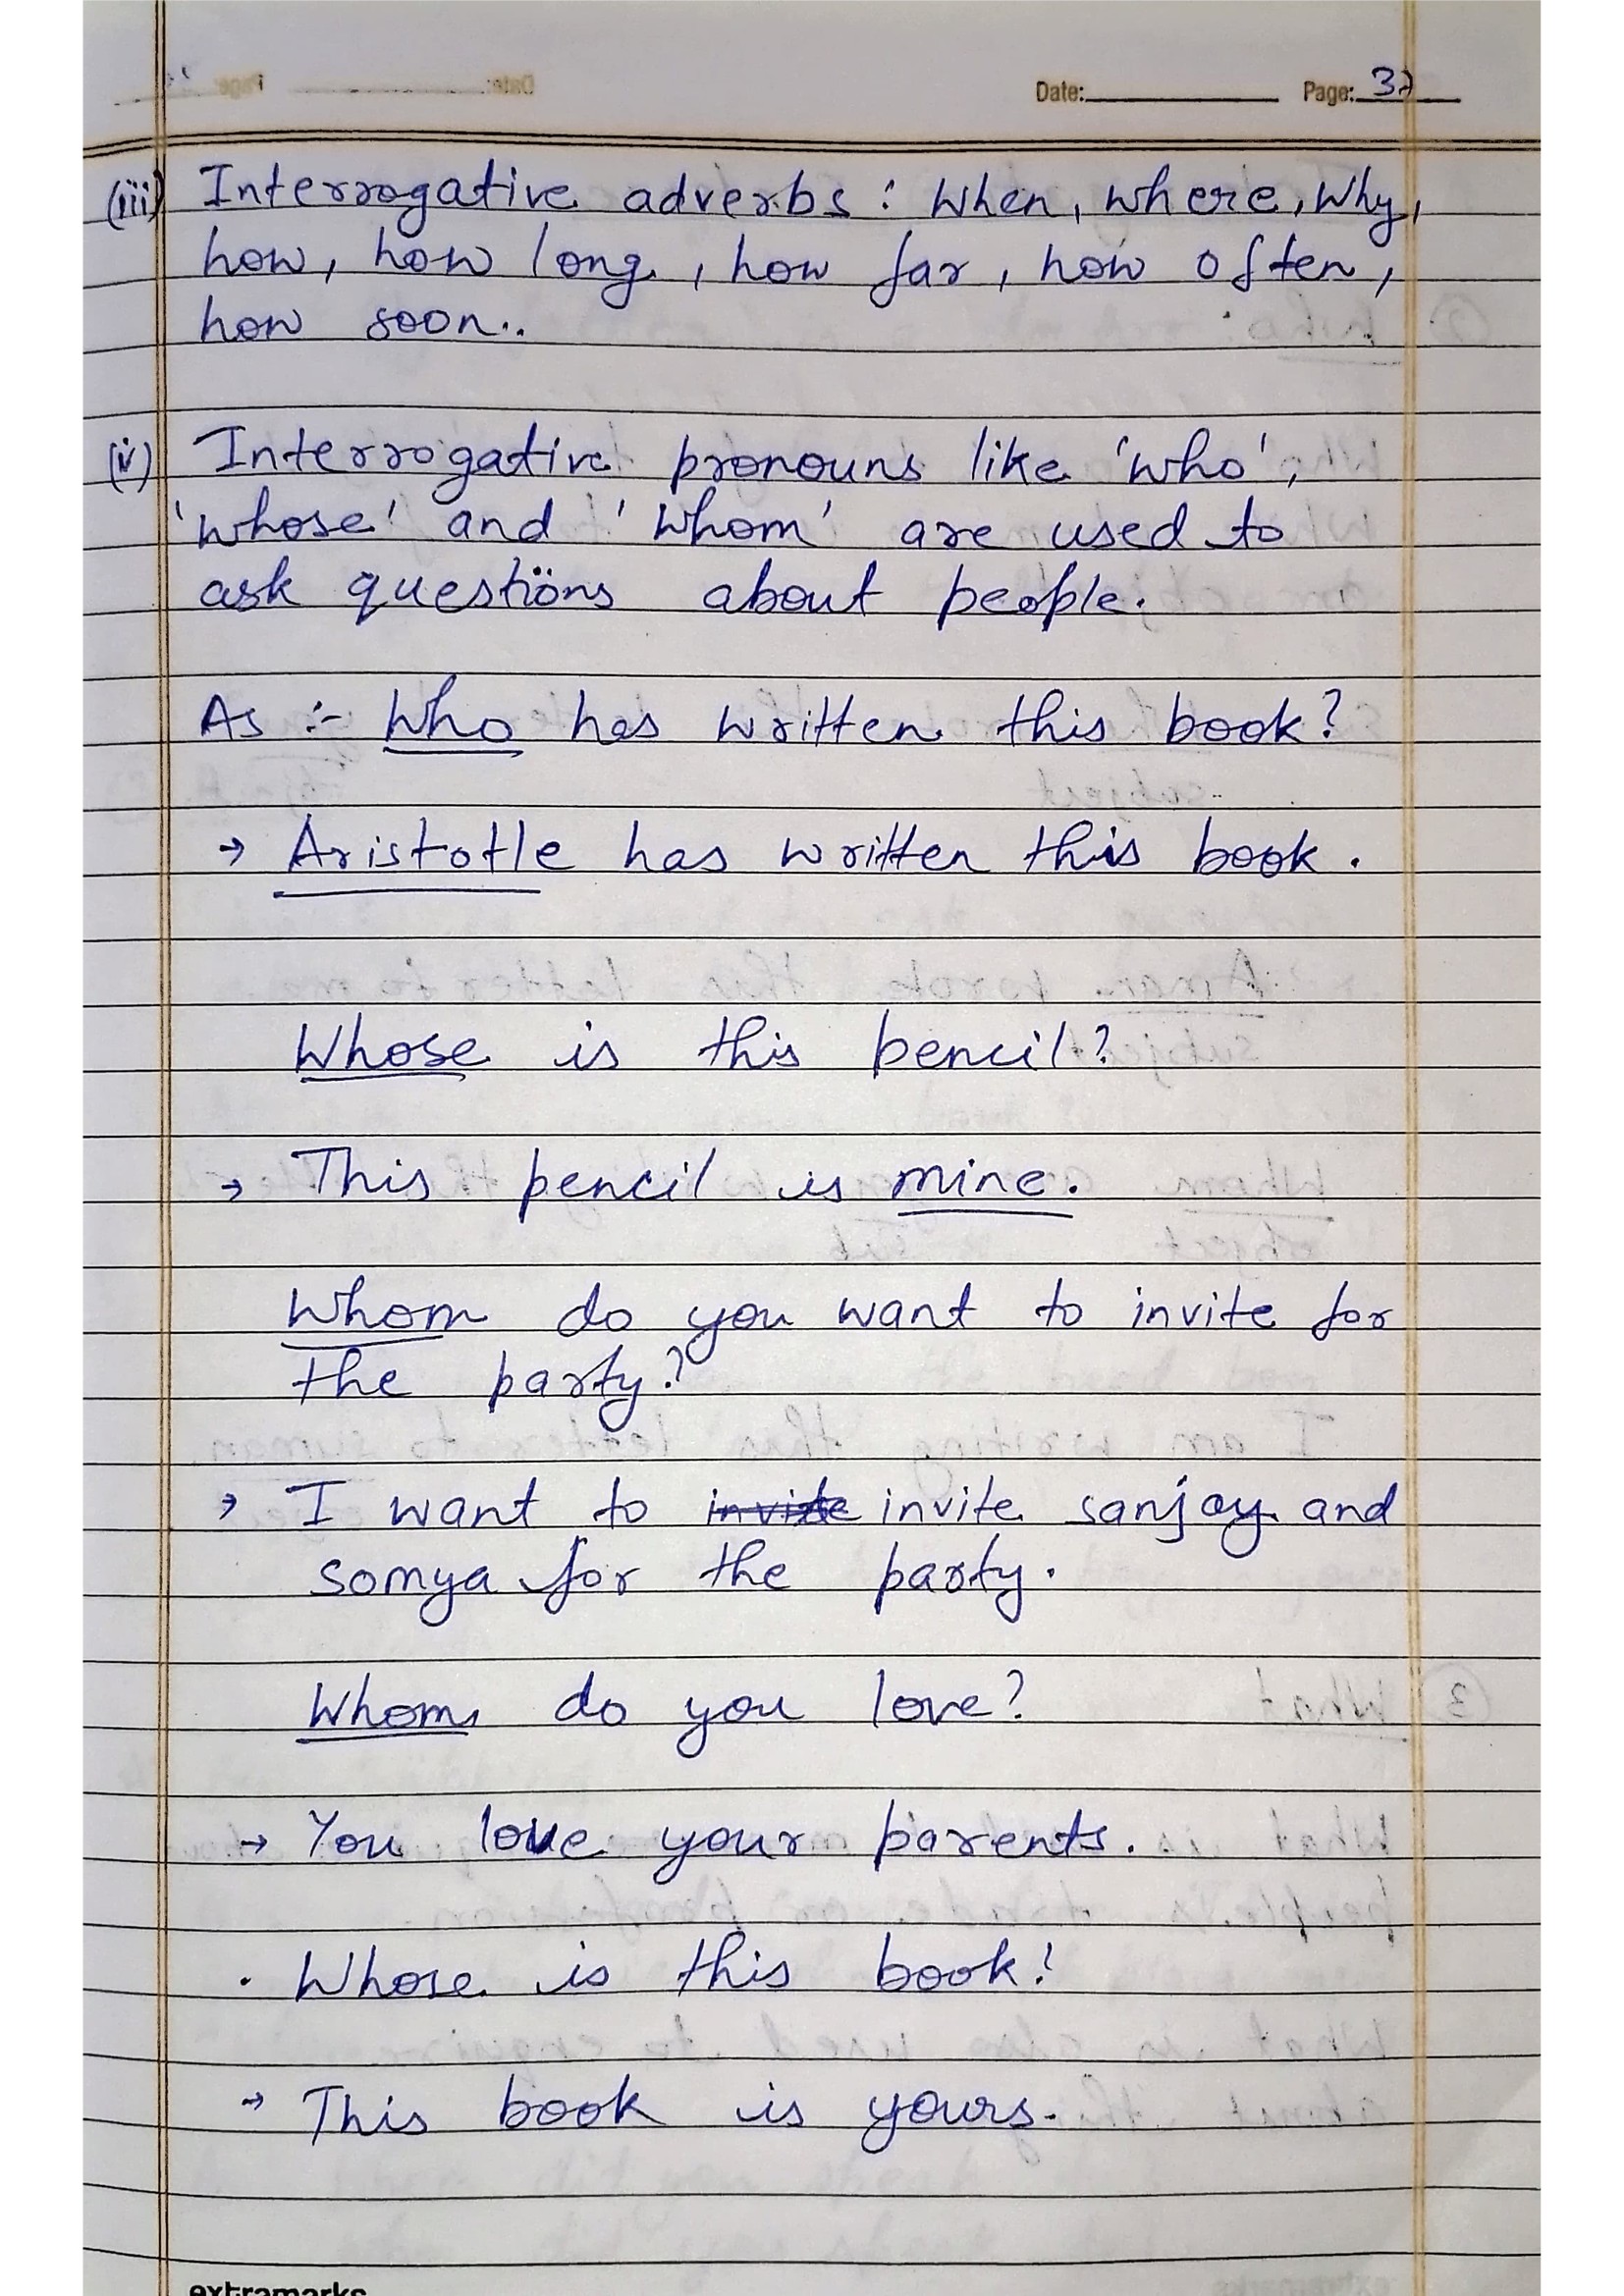 Date: Page: 32
(iii) Interrogative adverbs : When, where, Why,
how, how long, how far, how often,
how soon..
(iv) Interrogative pronouns like 'who',
'whose' and 'whom' are used to
ask questions about people.
As :- Who has written this book?
→ Aristotle has written this book.
Whose is this pencil?
→ This pencil is mine.
Whom do you want to invite for
the party?
→ I want to invite invite sanjay and
somya for the party.
Whom do you love?
→ You love your parents.
• Whose is this book?
→ This book is yours.
extramarks